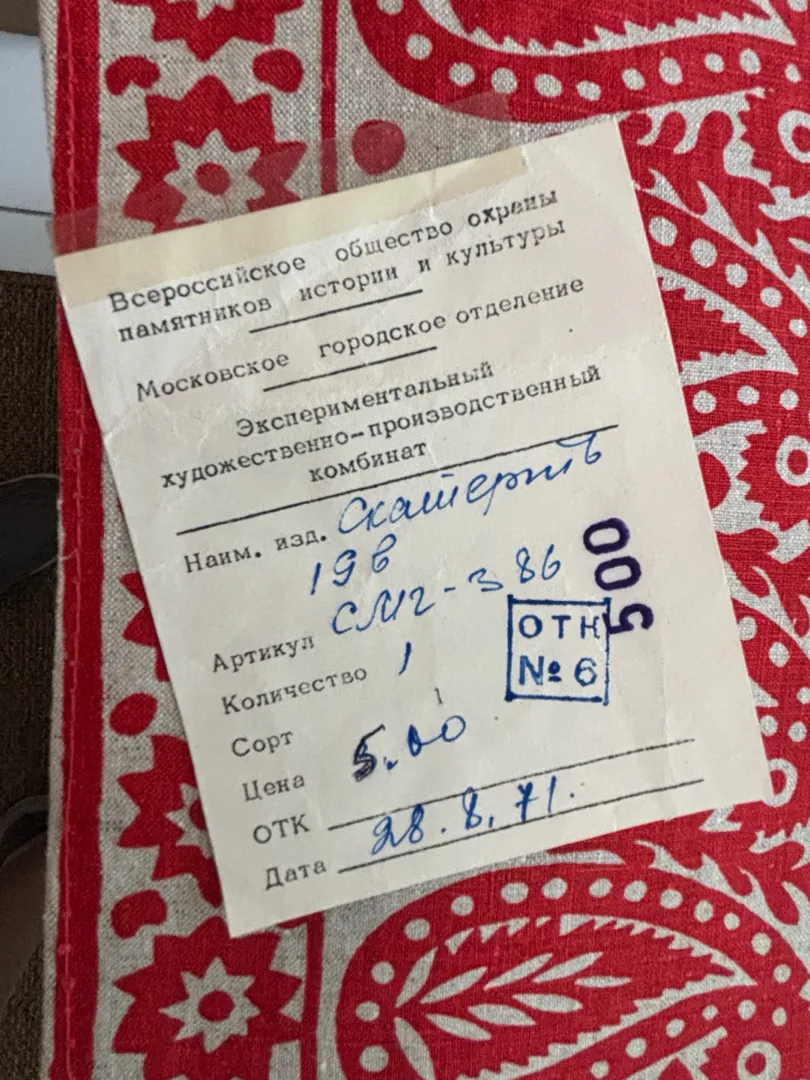 Всероссийское общество охраны
памятников истории и культуры
Московское городское отделение
Экспериментальный
художественно-производственный
комбинат
Наим. изд. Скатерть
19в
Артикул СМг-386
Количество 1
Сорт 1
Цена 5.00
ОТК
Дата 28.8.71.
ОТК
№ 6
500